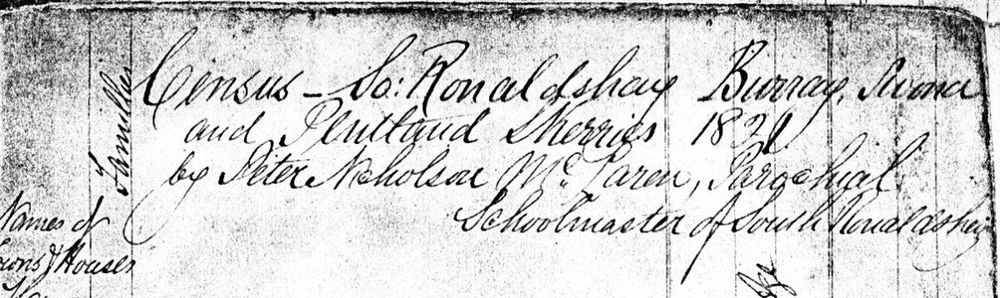 Census - So: Ronaldshay Burray, Swona
and Pentland Skerries 1821
by Peter Nicholson McLaren, Parochial
Schoolmaster of South Ronaldshay
Families
Names of
Towns & Houses